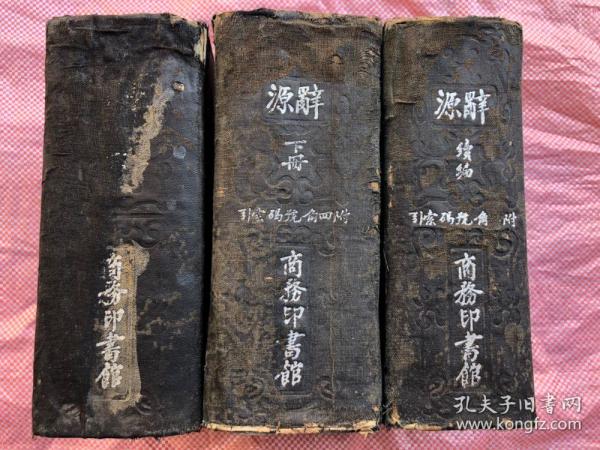 商務印書館
辭源
下冊
附四角號碼索引
商務印書館
辭源
續編
附 角號碼索引
商務印書館
孔夫子旧書网
www.kongfz.com